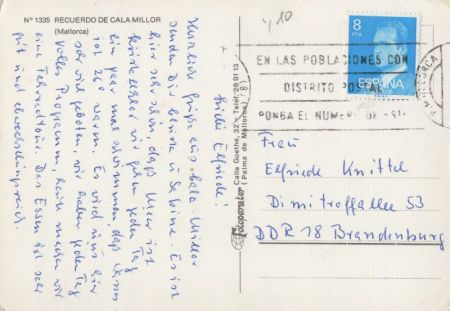 Nº 1335 RECUERDO DE CALA MILLOR
(Mallorca)
Liebe Elfriede!
Herzliche Grüße aus Cala-Millor
senden Dir Sabine. Es ist
hier sehr schön, das Meer ist
wir gehen jeden Tag
ein paar mal schwimmen, das Wasser
ist warm. Es wird uns hier
sehr viel geboten, wir haben jeden Tag
volles Programm, heute machen wir
eine Fahrradtour. Das Essen ist sehr
gut und abwechslungsreich.
Fotoperator
Calle Goethe, 32 - Teléf. 28 91 13
( Palma de Mallorca )
y 10
8
PTA
ESPAÑA
EN LAS POBLACIONES CON
DISTRITO POSTAL
PONGA EL NUMERO DE
Frau
Elfriede Knittel
Dimitroffallee 53
DDR 18 Brandenburg